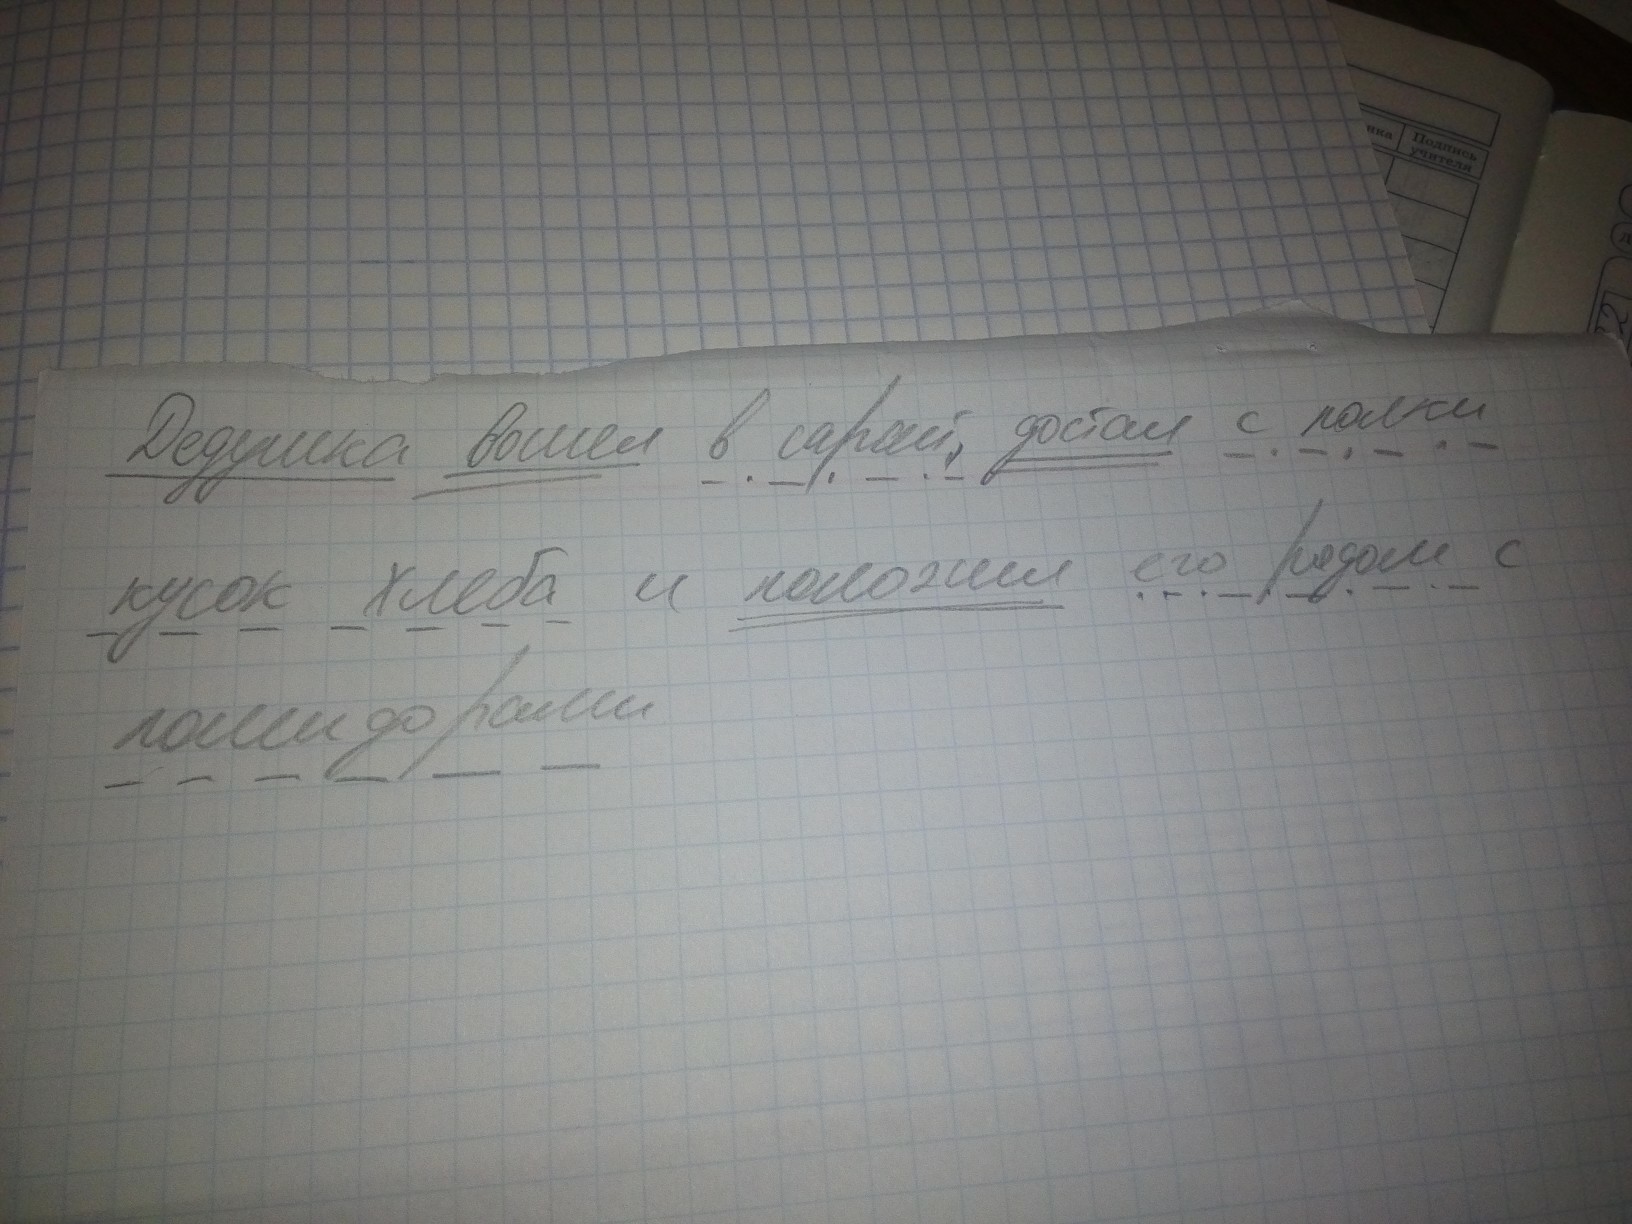 нка Подпись
учителя
22
Дедушка вошел в сарай, достал с полки
кусок хлеба и положил его рядом с
помидорами